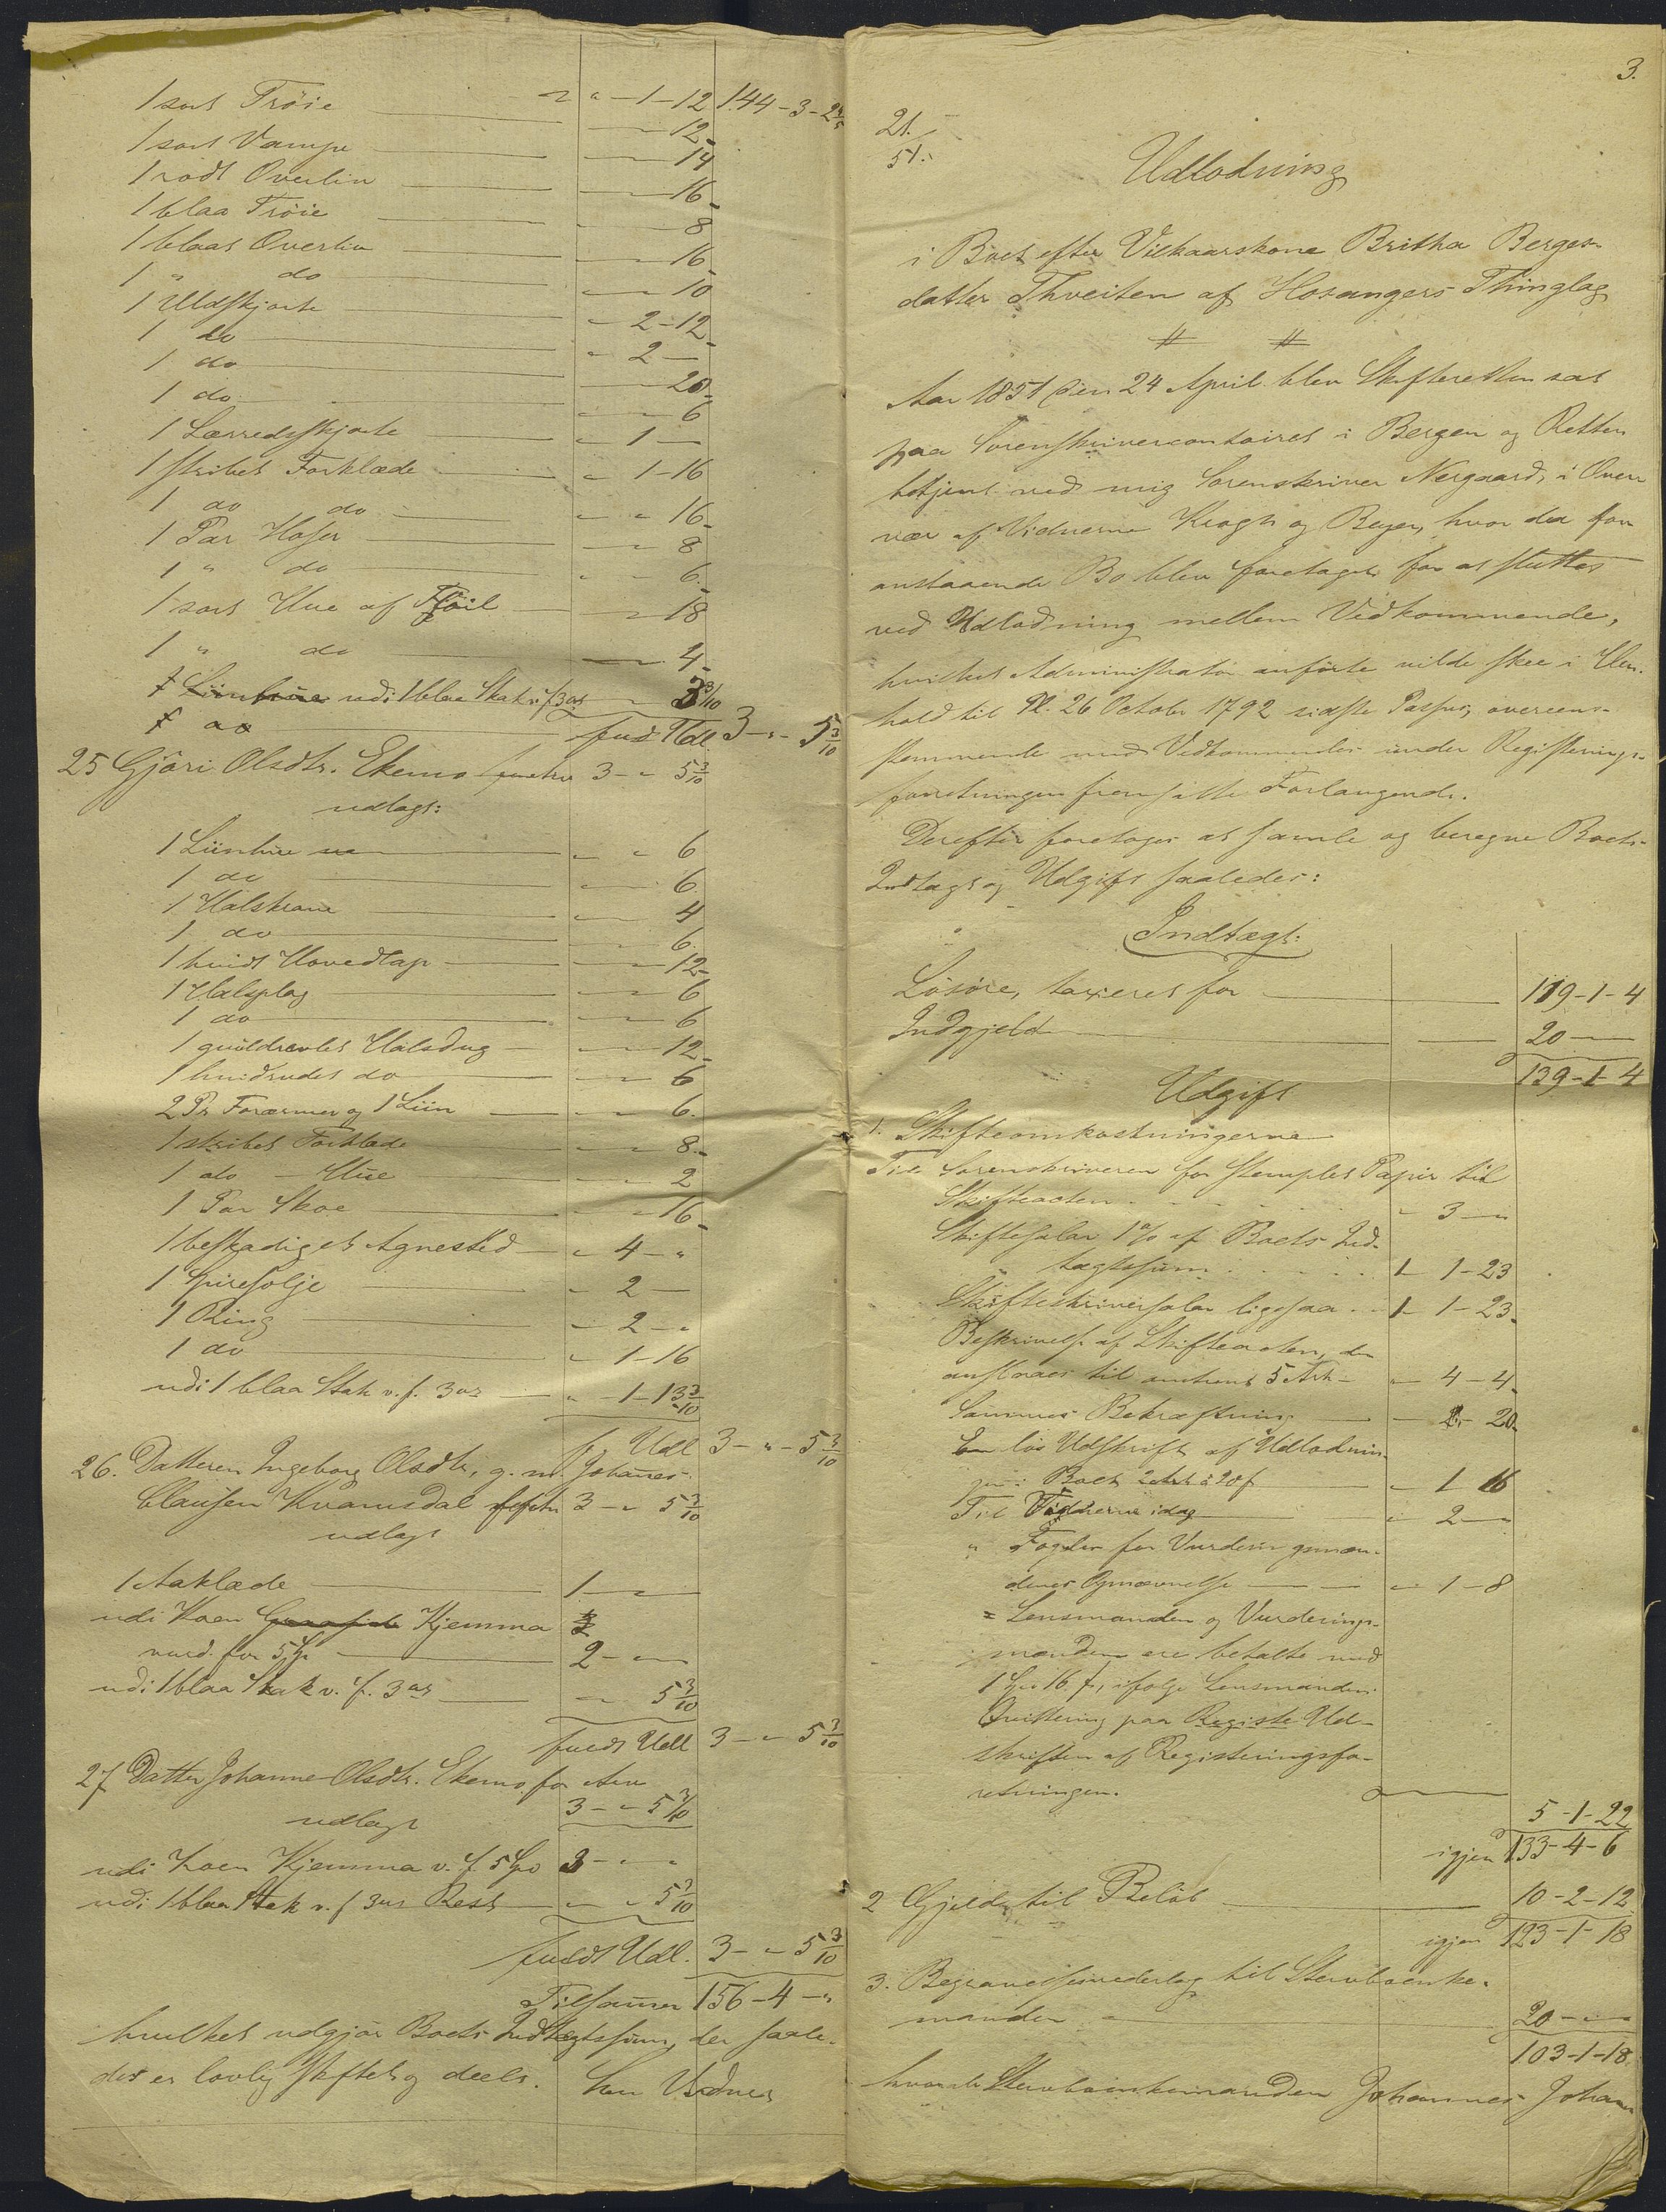 1 sort Trøie " - 1 - 12 144 - 3 - 2 4/5
1 sort Vampe 12
1 rødt Overliv 14
1 blaa Trøie 16
1 blaat Overliv 8
1 " do 16
1 Uldskjorte 10
1 do 2 - 12
1 do 2 -
1 do 20
1 Lærredsskjorte 6
1 stribet Forklæde 1 -
1 do do 1 - 16
1 Par Hoser 16
1 " do 8
1 sort Hue af Fløil 6
1 " do 18
4
udi 1 blaa Stak v. f. 3 ort 3 3/10
fuldt Udl. 3 - " - 5 3/10
25 Gjøri Olsdtr. Ekemo 3 - " 5 3/10
udlagt:
1 Liinhue " " 6
1 do 6
1 Halskrave 4
1 do 6
1 hvidt Hovedtap 12
1 Halsplag 6
1 do 6
1 Halsdug 12
1 hvidrudet do 6
2 Pr Forærmer og 1 Liin 6
1 stribet Forklæde 8
1 do - Hue 2
1 Par Skoe 16
1 beskadiget Agnested " 4 - "
1 Spiresølje 2 -
1 Ring 2 - "
1 do " 1 - 16
udi 1 blaa Stak v. f. 3 ort " - 1 - 13 3/10
f. Udl 3 - " - 5 3/10
26. Datteren Ingeborg Olsdtr, g. m. Johannes
Clausen Kvamsdal 3 - " 5 3/10
udlagt
1 Aaklæde 1 - "
udi Koen Kjemma
vurd. for 5 Spd 2 - "
udi 1 blaa Stak v. f. 3 ort 5 3/10
fuldt Udl 3 - " 5 3/10
27 Datter Johanne Olsdtr. Ekemo for Arv
3 - " 5 3/10
udlagt
udi Koen Kjemma v. f. 5 Spd 3 - " "
udi 1 blaa Stak v. f. 3 ort Rest " " 5 3/10
fuldt Udl. 3 - " 5 3/10
Tilsammen 156 - 4 - "
hvilket udgjør Boets Indtægtssum, der saale-
des er lovlig skiftet og deelt. Som Vidner
3.
21.
51.
Udlodning
i Boet efter Vilkaarskone Britha Berges-
datter Thveiten af Hosangers Thinglag
Aar 1851 den 24 April blev Skifteretten sat
paa Sorenskrivercontoiret i Bergen og Retten
betjent ved mig Sorenskriver Nergaard, i Over-
vær af Vidnerne Krogh og Beyer, hvor da for-
anstaaende Bo blev foretaget for at sluttes
ved Udlodning mellem Vedkommende,
hvilket Administrator anførte vilde skee i Hen-
hold til Pl. 26 October 1792 sidste Passus, overeens-
stemmende med Vedkommendes under Registerings-
forretningen fremsatte Forlangende.
Derefter foretoges at samle og beregne Boets
Indtægt og Udgift saaledes:
Indtægt:
Løsøre, taxeret for 119 - 1 - 4
Indgjeld 20 -
139 - 1 - 4
Udgift
1. Skifteomkostningerne
Til Sorenskriveren for stemplet Papir til
Skifteacten - 3 - "
Skiftesalar 1 % af Boets Ind-
tægtssum 1 - 1 - 23
Skifteskriversalar ligesaa 1 - 1 - 23
Beskrivelse af Skifteacten, der
anslaaes til omtrent 5 Ark - 4 - 4
Sammes Bekræftning - 20
En løs Udskrift af Udlodnin-
gen i Boet 2 Ark - 1 16
Til Vidnerne idag - 2 -
" Fogden for Vurderingsmæn-
denes Opnævnelse - 1 - 8
" Lensmanden og Vurderings-
mændene ere betalte med
1 Spd 16 s, ifølge Lensmandens
Qvittering paa Registe Ud-
skriften af Registeringsfor-
retningen.
5 - 1 - 22
igjen 133 - 4 - 6
2 Gjeld, til Beløb 10 - 2 - 12
igjen 123 - 1 - 18
3. Begravelsesvederlag til Stervboenke-
manden 20 - "
103 - 1 - 18
hvoraf Stervboenkemanden Johannes Johan